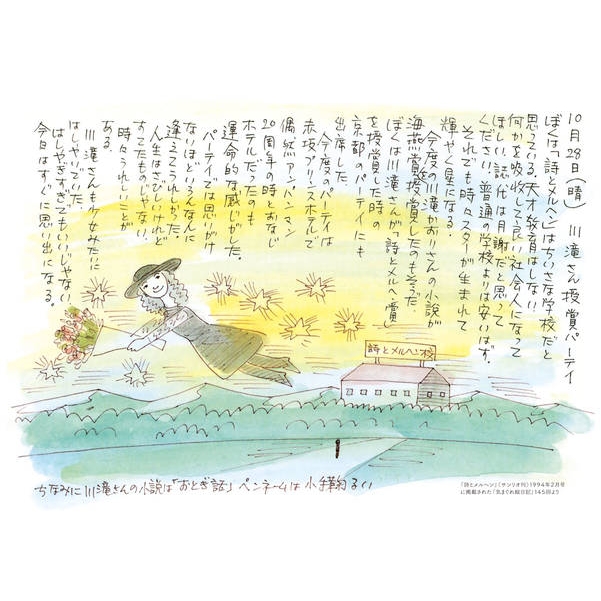 10月28日(晴) 川滝さん授賞パーティ
ぼくは「詩とメルヘン」はちいさな学校だと
思っている。天才教育はしない。
何かを吸収して良い社会人になって
ほしい。誌代は月謝だと思って
ください。普通の学校よりは安いはず。
それでも時々スターが生まれて
輝やく星になる。
今度の川滝かおりさんの小説が
海燕賞授賞したのもそうだ
ぼくは川滝さんが「詩とメルヘン賞」
を授賞した時の
京都のパーティにも
出席した。
今度のパーティは
赤坂プリンスホテルで
偶然アンパンマン
20周年の時とおなじ
ホテルだったのも
運命的な感じがした。
パーティでは思いがけ
ないほどいろんなひとに
逢えてうれしかった。
人生はさびしいけれど
すてたものじゃない。
時々うれしいことが
ある。
川滝さんも少女みたいに
はしゃいでいた。
はしゃぎすぎてもいいじゃない
今日はすぐに思い出になる。
詩とメルヘン校
ちなみに川滝さんの小説は「おとぎ話」ペンネームは小手鞠るい
「詩とメルヘン」(サンリオ刊)1994年2月号
に掲載された「気まぐれ絵日記」145回より